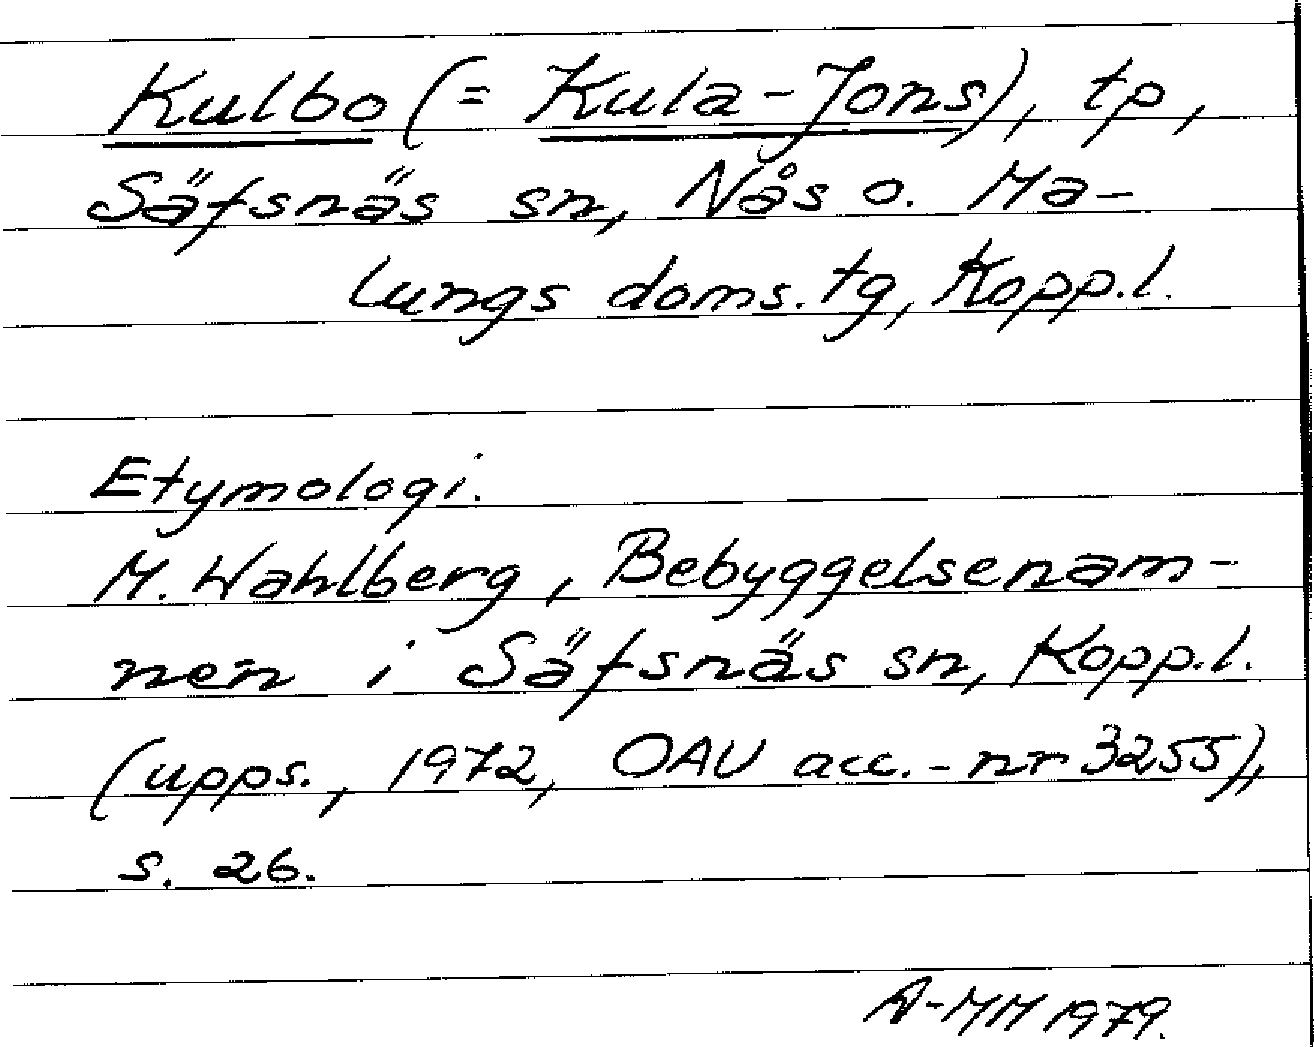 Kulbo (= Kula-Jons), tp,
Säfsnäs sn, Nås o. Ma-
lungs doms.tg, Kopp.l.
Etymologi.
M. Wahlberg, Bebyggelsenam-
nen i Säfsnäs sn, Kopp.l.
(upps., 1972, OAU acc.-nr 3255),
s. 26.
A-MM 1979.